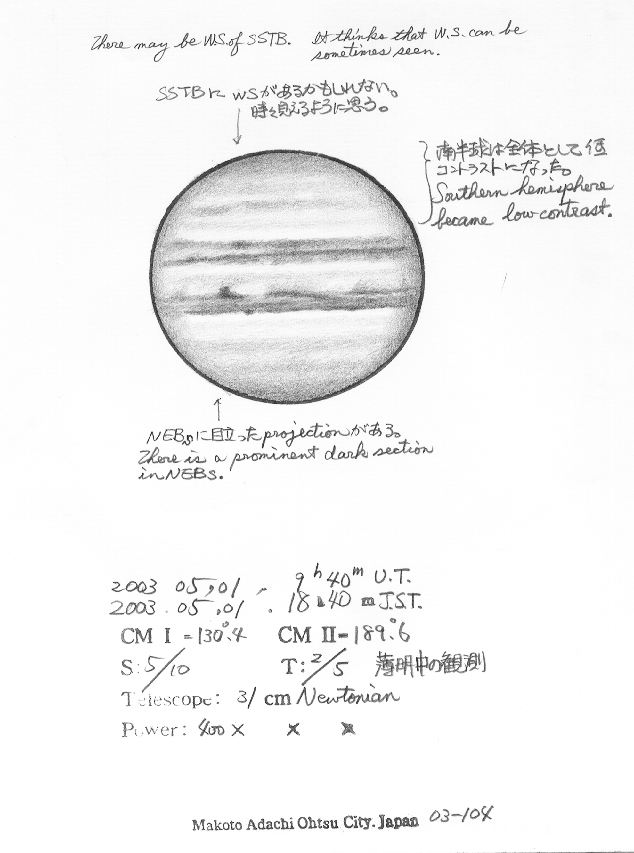 There may be W.S. of SSTB. It thinks that W.S. can be
sometimes seen.
SSTBに WSがあるかもしれない。
時々見えるように思う。
南半球は全体として低
コントラストになった。
Southern hemisphere
became low contrast.
NEBsに目立ったprojectionがある。
There is a prominent dark section
in NEBs.
2003 05,01 9h 40m U.T.
2003.05,01. 18h40mJ.S.T.
CM I = 130°.4 CM II = 189°.6
S: 5/10 T: 2/5 薄明中の観測
Telescope: 31 cm Newtonian
Power: 400 × × ×
Makoto Adachi Ohtsu City. Japan 03-104